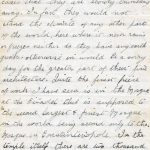 away. In fact they would not
stand the climate of any other part
of the world, here where it never rains
or freezes neither do they have any earth
quakes otherwise it would be a sorry
day for the greater part of their fine
architecture. Quite the finest piece
of work I have seen is in the Mosque
at the Citadel that is supposed to
the most largest & finest Mosque in
the world, being second only to the
Mosque in Constantinople. In the
temple itself there are two thousand